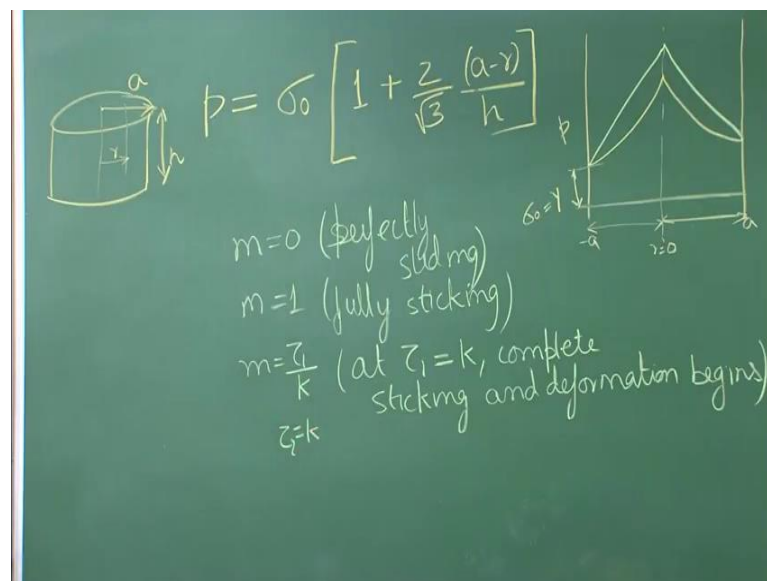 a
r
h
p = σ₀ [1 + 2/√3 (a-r)/h]
p
σ₀=Y
-a
r=0
a
m=0 (perfectly
sliding)
m=1 (fully sticking)
m=τᵢ/k (at τᵢ=k, complete
sticking and deformation begins)
τᵢ=k